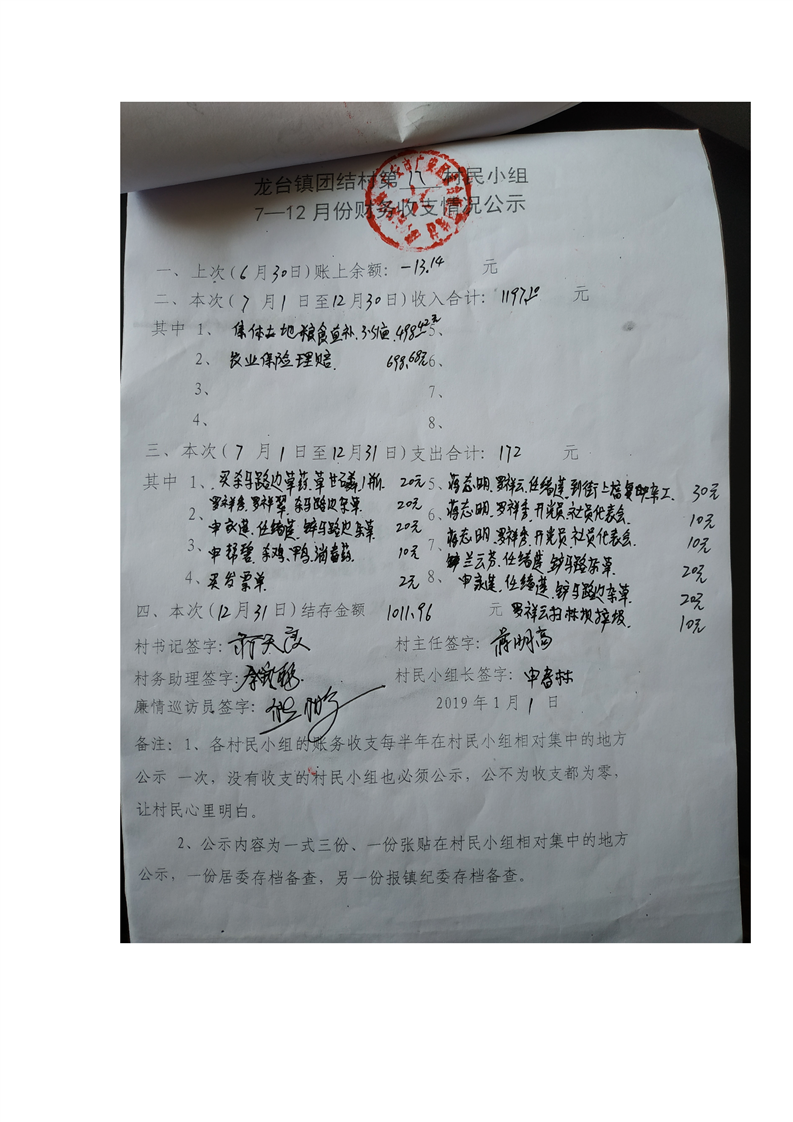 龙台镇团结村第 村民小组
7—12月份财务收支情况公示
一、上次(6月30日)账上余额: -13.14 元
二、本次(7月1日至12月30日)收入合计: 1197.10 元
其中 1、集体土地粮食直补.3.51亩.498.42元 5、
2、农业保险理赔. 698.68元 6、
3、 7、
4、 8、
三、本次(7月1日至12月31日)支出合计: 172 元
其中 1、买杀马路边草药.草甘磷.1瓶. 20元 5、蒋志明.罗祥云.任绪莲.到街上 复印 工. 30元
2、罗祥秀.罗祥翠.杀马路边杂草 20元 6、蒋志明.罗祥秀.开党员.社员代表会. 10元
3、申永莲.任绪莲.铲马路边杂草 20元 7、蒋志明.罗祥秀.开党员.社员代表会. 10元
申帮碧.杀鸡.鸭.消毒药. 10元 钟兰云芳.任绪莲.铲马路杂草. 20元
4、买发票单. 2元 8、申永莲.任绪莲.铲马路边杂草. 20元
四、本次(12月31日)结存金额 1011.96 元 罗祥云扫 坝垃圾. 10元
村书记签字: 村主任签字: 蒋明高
村务助理签字: 村民小组长签字: 申 林
廉情巡访员签字: 2019年1月1日
备注:1、各村民小组的账务收支每半年在村民小组相对集中的地方
公示 一次,没有收支的村民小组也必须公示,公不为收支都为零,
让村民心里明白。
2、公示内容为一式三份、一份张贴在村民小组相对集中的地方
公示,一份居委存档备查,另一份报镇纪委存档备查。